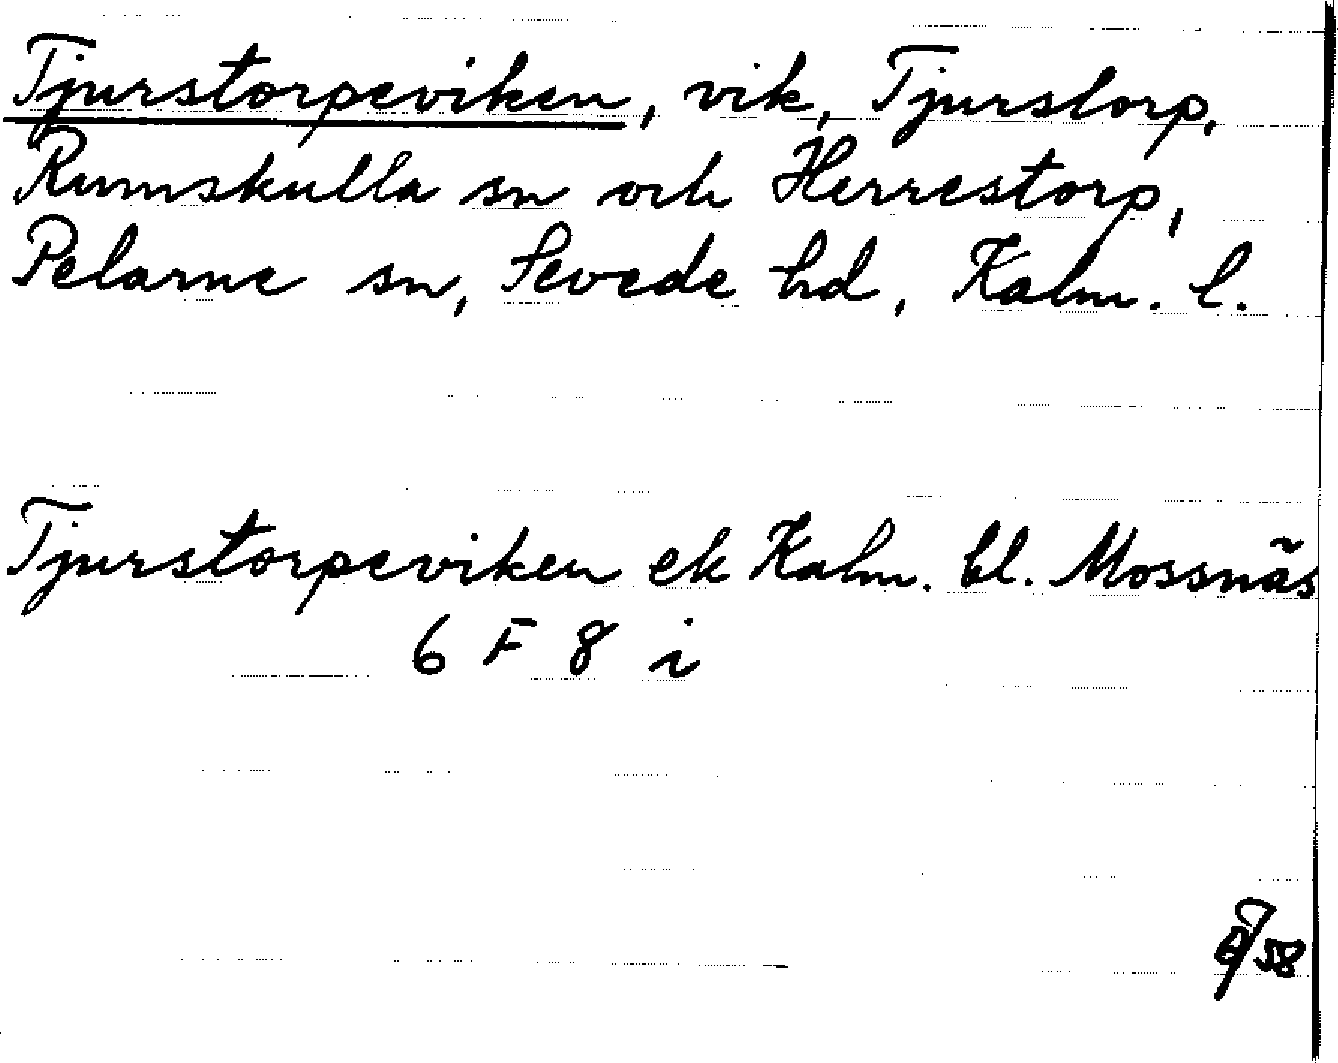 Tjurstorpeviken, vik, Tjurstorp,
Rumskulla sn och Herrestorp,
Pelarne sn, Sevede hd, Kalm. l.
Tjurstorpeviken ek Kalm. bl. Mossnäs
6 F 8 i
58